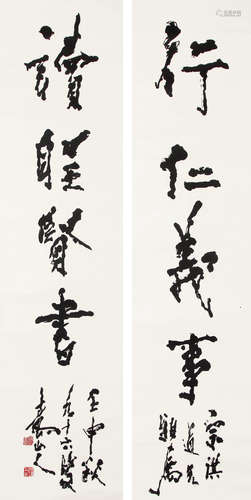 行仁義事
道兄
雅屬
讀聖賢書
壬申秋
九十六叟
山人